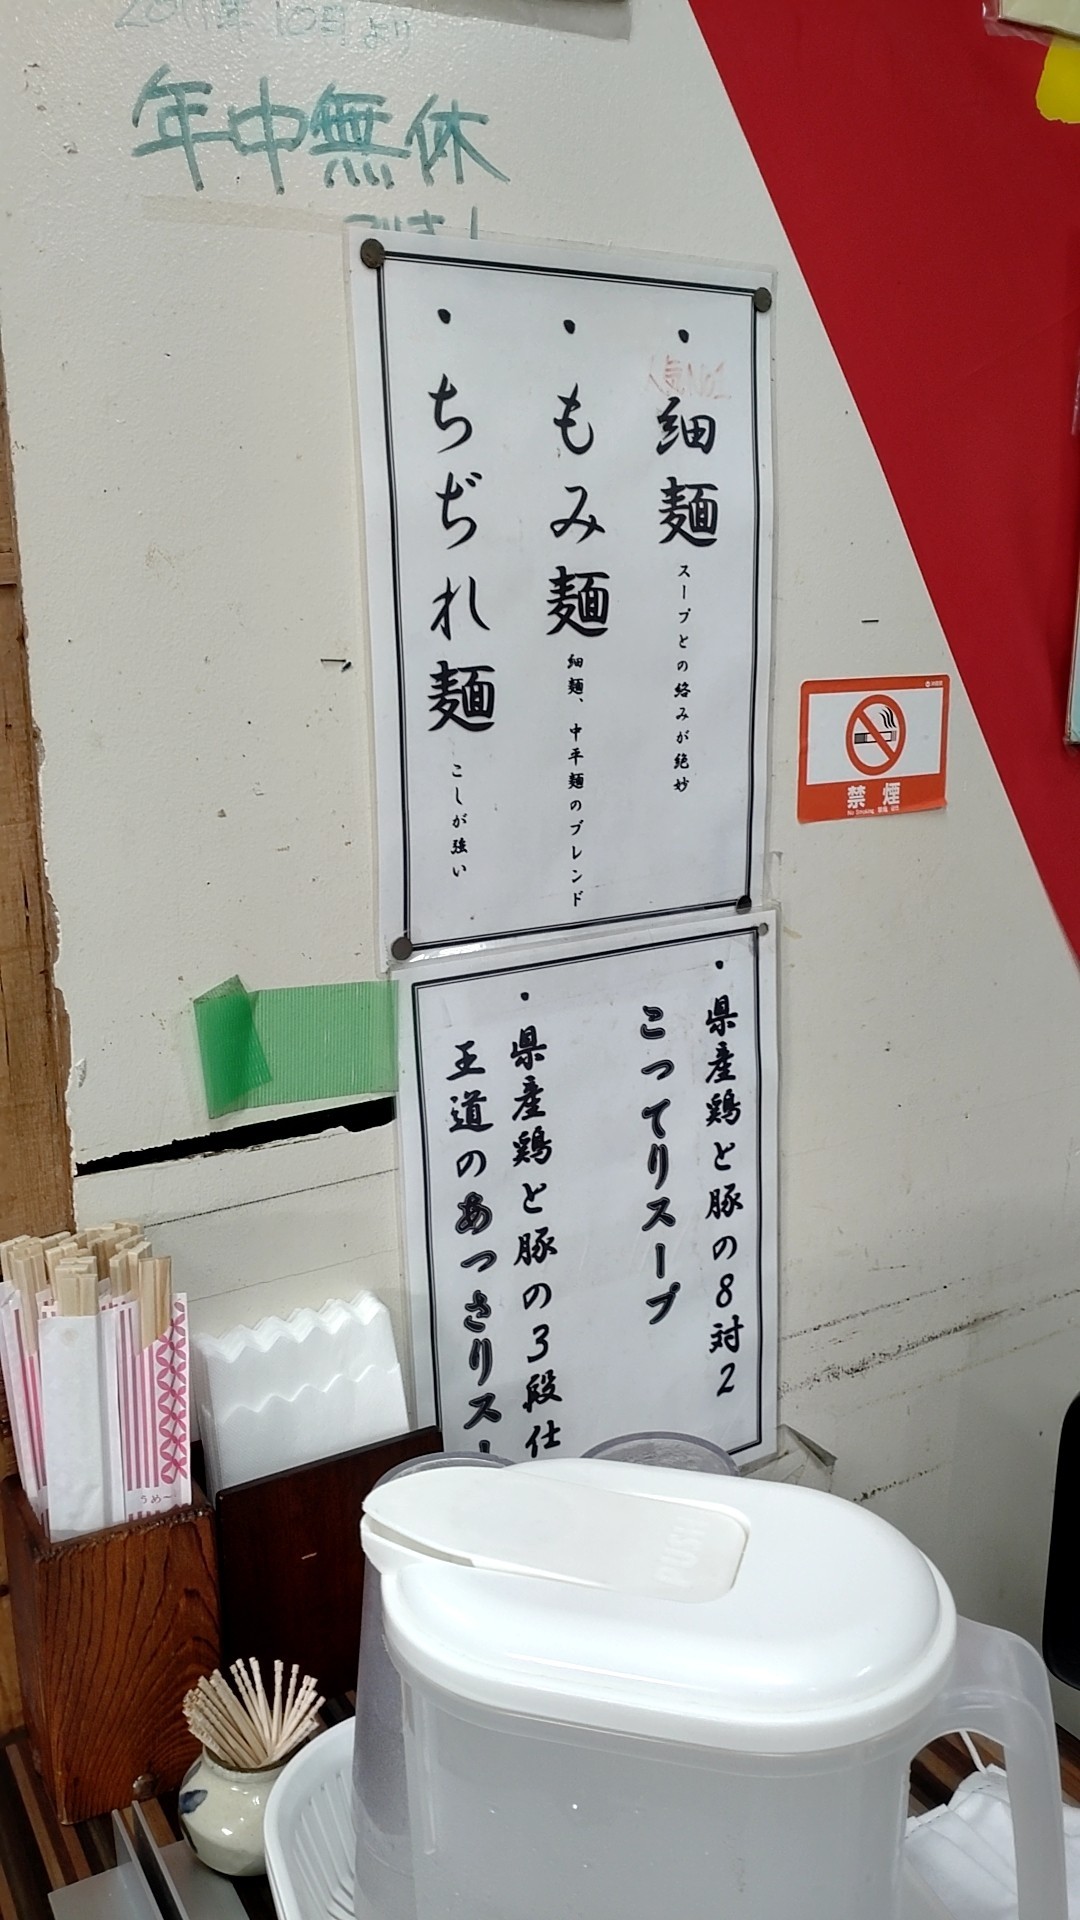 2011年10月より
年中無休
・人気No1
細麺 スープとの絡みが絶妙
・もみ麺 細麺、中平麺のブレンド
・ちぢれ麺 こしが強い
禁煙
No Smoking
・県産鶏と豚の8対2
こってりスープ
・県産鶏と豚の3段仕
王道のあっさりスー
うめー
PUSH